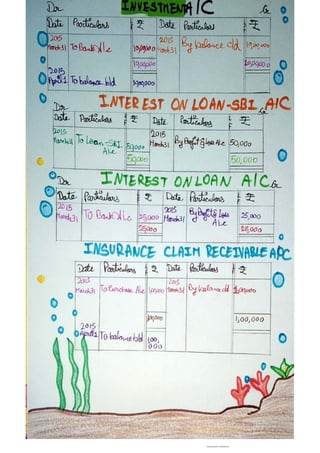 Dr INVESTMENT A/C Cr
Date Particulars ₹ Date Particulars ₹
2015 2015
March31 To Bank A/c 10,00,000 March31 By balance c/d 10,00,000
10,00,000 10,00,000
2015
April 1 To balance b/d 10,00,000
Dr INTEREST ON LOAN-SBI A/C
Date Particulars ₹ Date Particulars ₹
2015 2015
March31 To Loan-SBI 50,000 March31 By Profit & Loss A/c 50,000
A/c
50,000 50,000
Dr INTEREST ON LOAN A/C Cr
Date Particulars ₹ Date Particulars ₹
2015 2015 By Profit & Loss
March31 To Bank A/c 25,000 March31 A/c 25,000
25,000 25,000
INSURANCE CLAIM RECEIVABLE A/C
Date Particulars ₹ Date Particulars ₹
2015 2015
March31 To Purchase A/c 1,00,000 March31 By balance c/d 1,00,000
1,00,000 1,00,000
2015
April 1 To balance b/d 1,00,
000